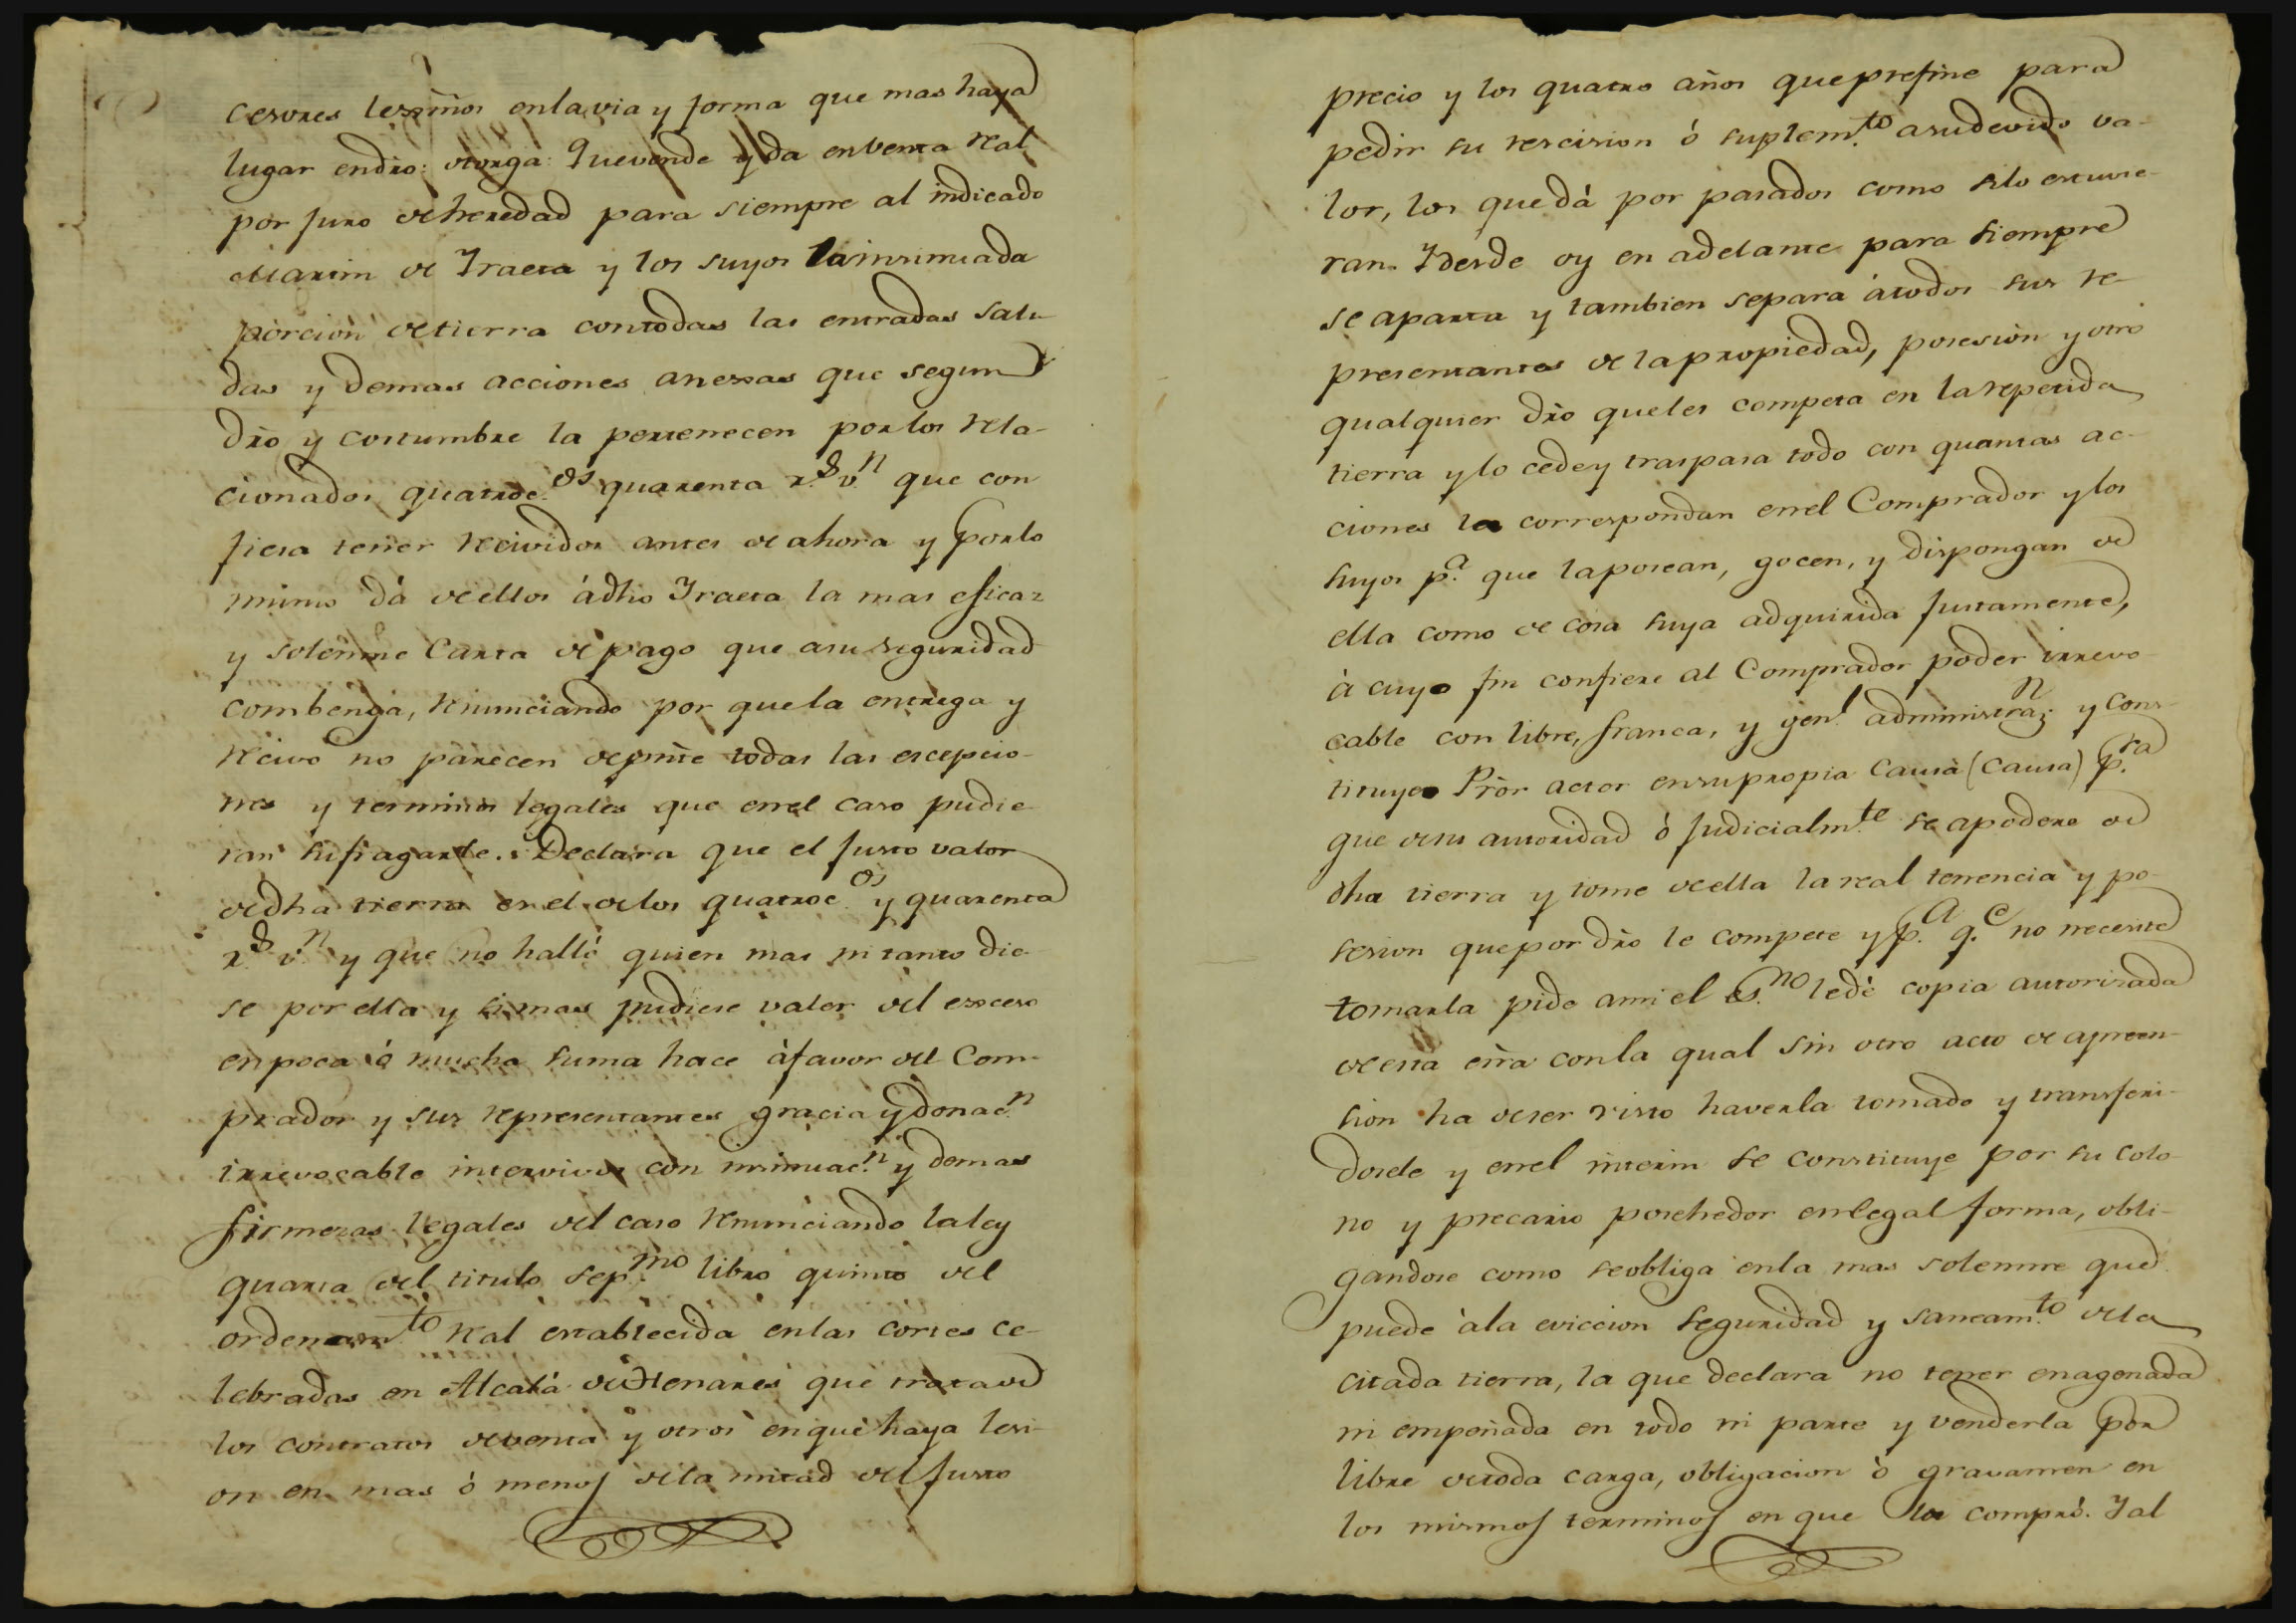 cesores lexmõs enlavia y forma que mas haya
lugar endrõ: otorga: Quevende y da enbenta Real
por juro deheredad para siempre al indicado
Martin de Iraeta y los suyos la insinuada
porcion detierra contodas las entradas sali-
das y demas acciones anexas que segun
drõ y costumbre la pertenecen porlos rela-
cionados quatroc.os quarenta r.s v.n que con
fiesa tener recividos antes de ahora y porlo
mismo dá deellos ádho Iraeta la mas eficaz
y solemne Carta de pago que asu seguridad
combenga, renunciando por quela entrega y
recivo no parecen depnte todas las escepcio-
nes y terminos legales que enel caso pudie
ran sufragarle. Declara que el justo valor
dedha tierra es el delos quatroc.os y quarenta
r.s v.n y que no halló quien mas ni tanto die
se por ella y simas pudiese valer del exceso
enpoca ó mucha suma hace áfavor del Com-
prador y sus representantes gracia y donac.n
irrevocable intervivos con insinuac.n y demas
firmezas legales del caso renunciando laley
quarta del titulo sep.mo libro quinto del
ordenam.to Real establecida enlas cortes ce-
lebradas en Alcalá deHenares que trata de
los contratos deventa y otros enque haya lesi-
on en mas ó menos dela mitad del justo
precio y los quatro años queprefine para
pedir su rescision ó suplem.to asudevido va-
lor, los que dá por pasados como silo estuvie-
ran. Ydesde oy en adelante para siempre
se aparta y tambien separa átodos sus re-
presentantes de lapropiedad, posesion y otro
qualquier drõ queles competa en la repetida
tierra ylo cede y traspasa todo con quantas ac-
ciones le correspondan enel Comprador ylos
suyos p.a que laposean, gocen, y dispongan de
ella como de cosa suya adquirida justamente,
á cuyo fin confiere al Comprador poder irrevo-
cable con libre, franca, y gen.l administraz.n y cons-
tituye Prõr actor ensupropia Causa (Causa) p.ra
que desu autoridad ó judicialm.te se apodere de
dha tierra y tome deella la real tenencia y po-
sesion quepor drõ le compete y p.a q.e no necesite
tomarla pide ami el es.no ledé copia autorizada
deesta esrã conla qual sin otro acto de apreen-
sion ha deser visto haverla tomado y transferi-
dosele y enel interin se constituye por su colo-
no y precario posehedor enlegal forma, obli-
gandose como seobliga enla mas solemne que
puede ála eviccion seguridad y saneam.to dela
citada tierra, la que declara no tener enagenada
ni empeñada en todo ni parte y venderla por
libre detoda carga, obligacion ó gravamen en
los mismos terminos en que la compró. Y al